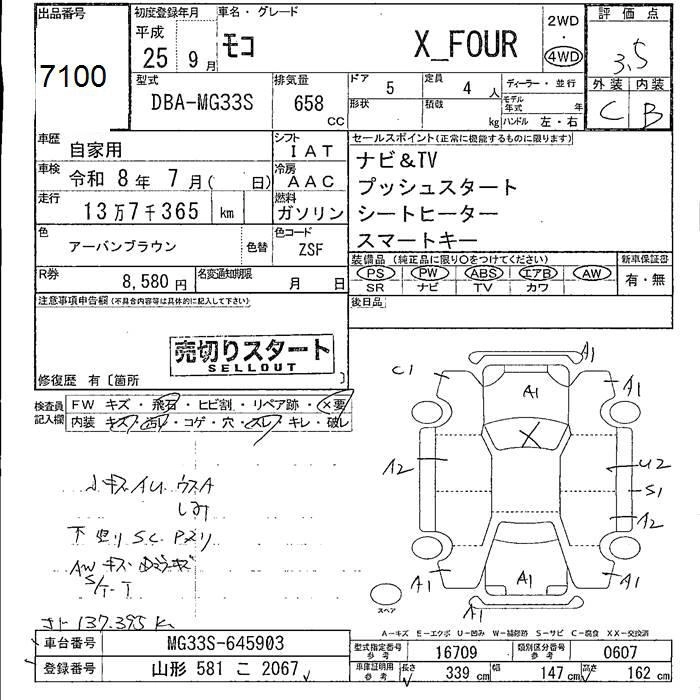 出品番号
7100
初度登録年月
平成
25年 9月
車名・グレード
モコ X_FOUR
2WD
・
4WD
評価点
3.5
外装 内装
C B
型式
DBA-MG33S
排気量
658
cc
ドア 5
定員 4人
形状
積載 kg
ディーラー・並行
モデル年式 年
ハンドル 左・右
車歴
自家用
シフト
IAT
車検
令和 8年 7月( 日)
冷房
AAC
走行
13万7千365 km
燃料
ガソリン
色
アーバンブラウン
色替
色コード
ZSF
R券
8,580円
名変通知期限
月 日
セールスポイント(正常に機能するものに限ります)
ナビ&TV
プッシュスタート
シートヒーター
スマートキー
装備品 (純正品に限り○をつけてください)
PS PW ABS エアB AW
SR ナビ TV カワ
新車保証書
有・無
後日品
注意事項申告欄(不具合内容等は具体的に記入して下さい)
売切りスタート
SELLOUT
修復歴 有〔箇所 〕
検査員記入欄
FW キズ・飛石・ヒビ割・リペア跡・×要
内装 キズ・汚レ・コゲ・穴・スレ・キレ・破レ
小キズAU ウスA
シミ
下回りSC. Pヌリ
AW キズ
S/T-T
137.395 K
C1
A1
A1
A1
X
A2
U2
S1
A2
A1
A1
A1
A1
スペア
A-キズ E-エクボ U-凹み W-補修跡 S-サビ C-腐食 XX-交換済
車台番号
MG33S-645903
登録番号
山形 581 こ 2067
型式指定番号
参考
16709
類別区分番号
参考
0607
車庫証明用
参考
長さ 339 cm
幅 147 cm
高さ 162 cm